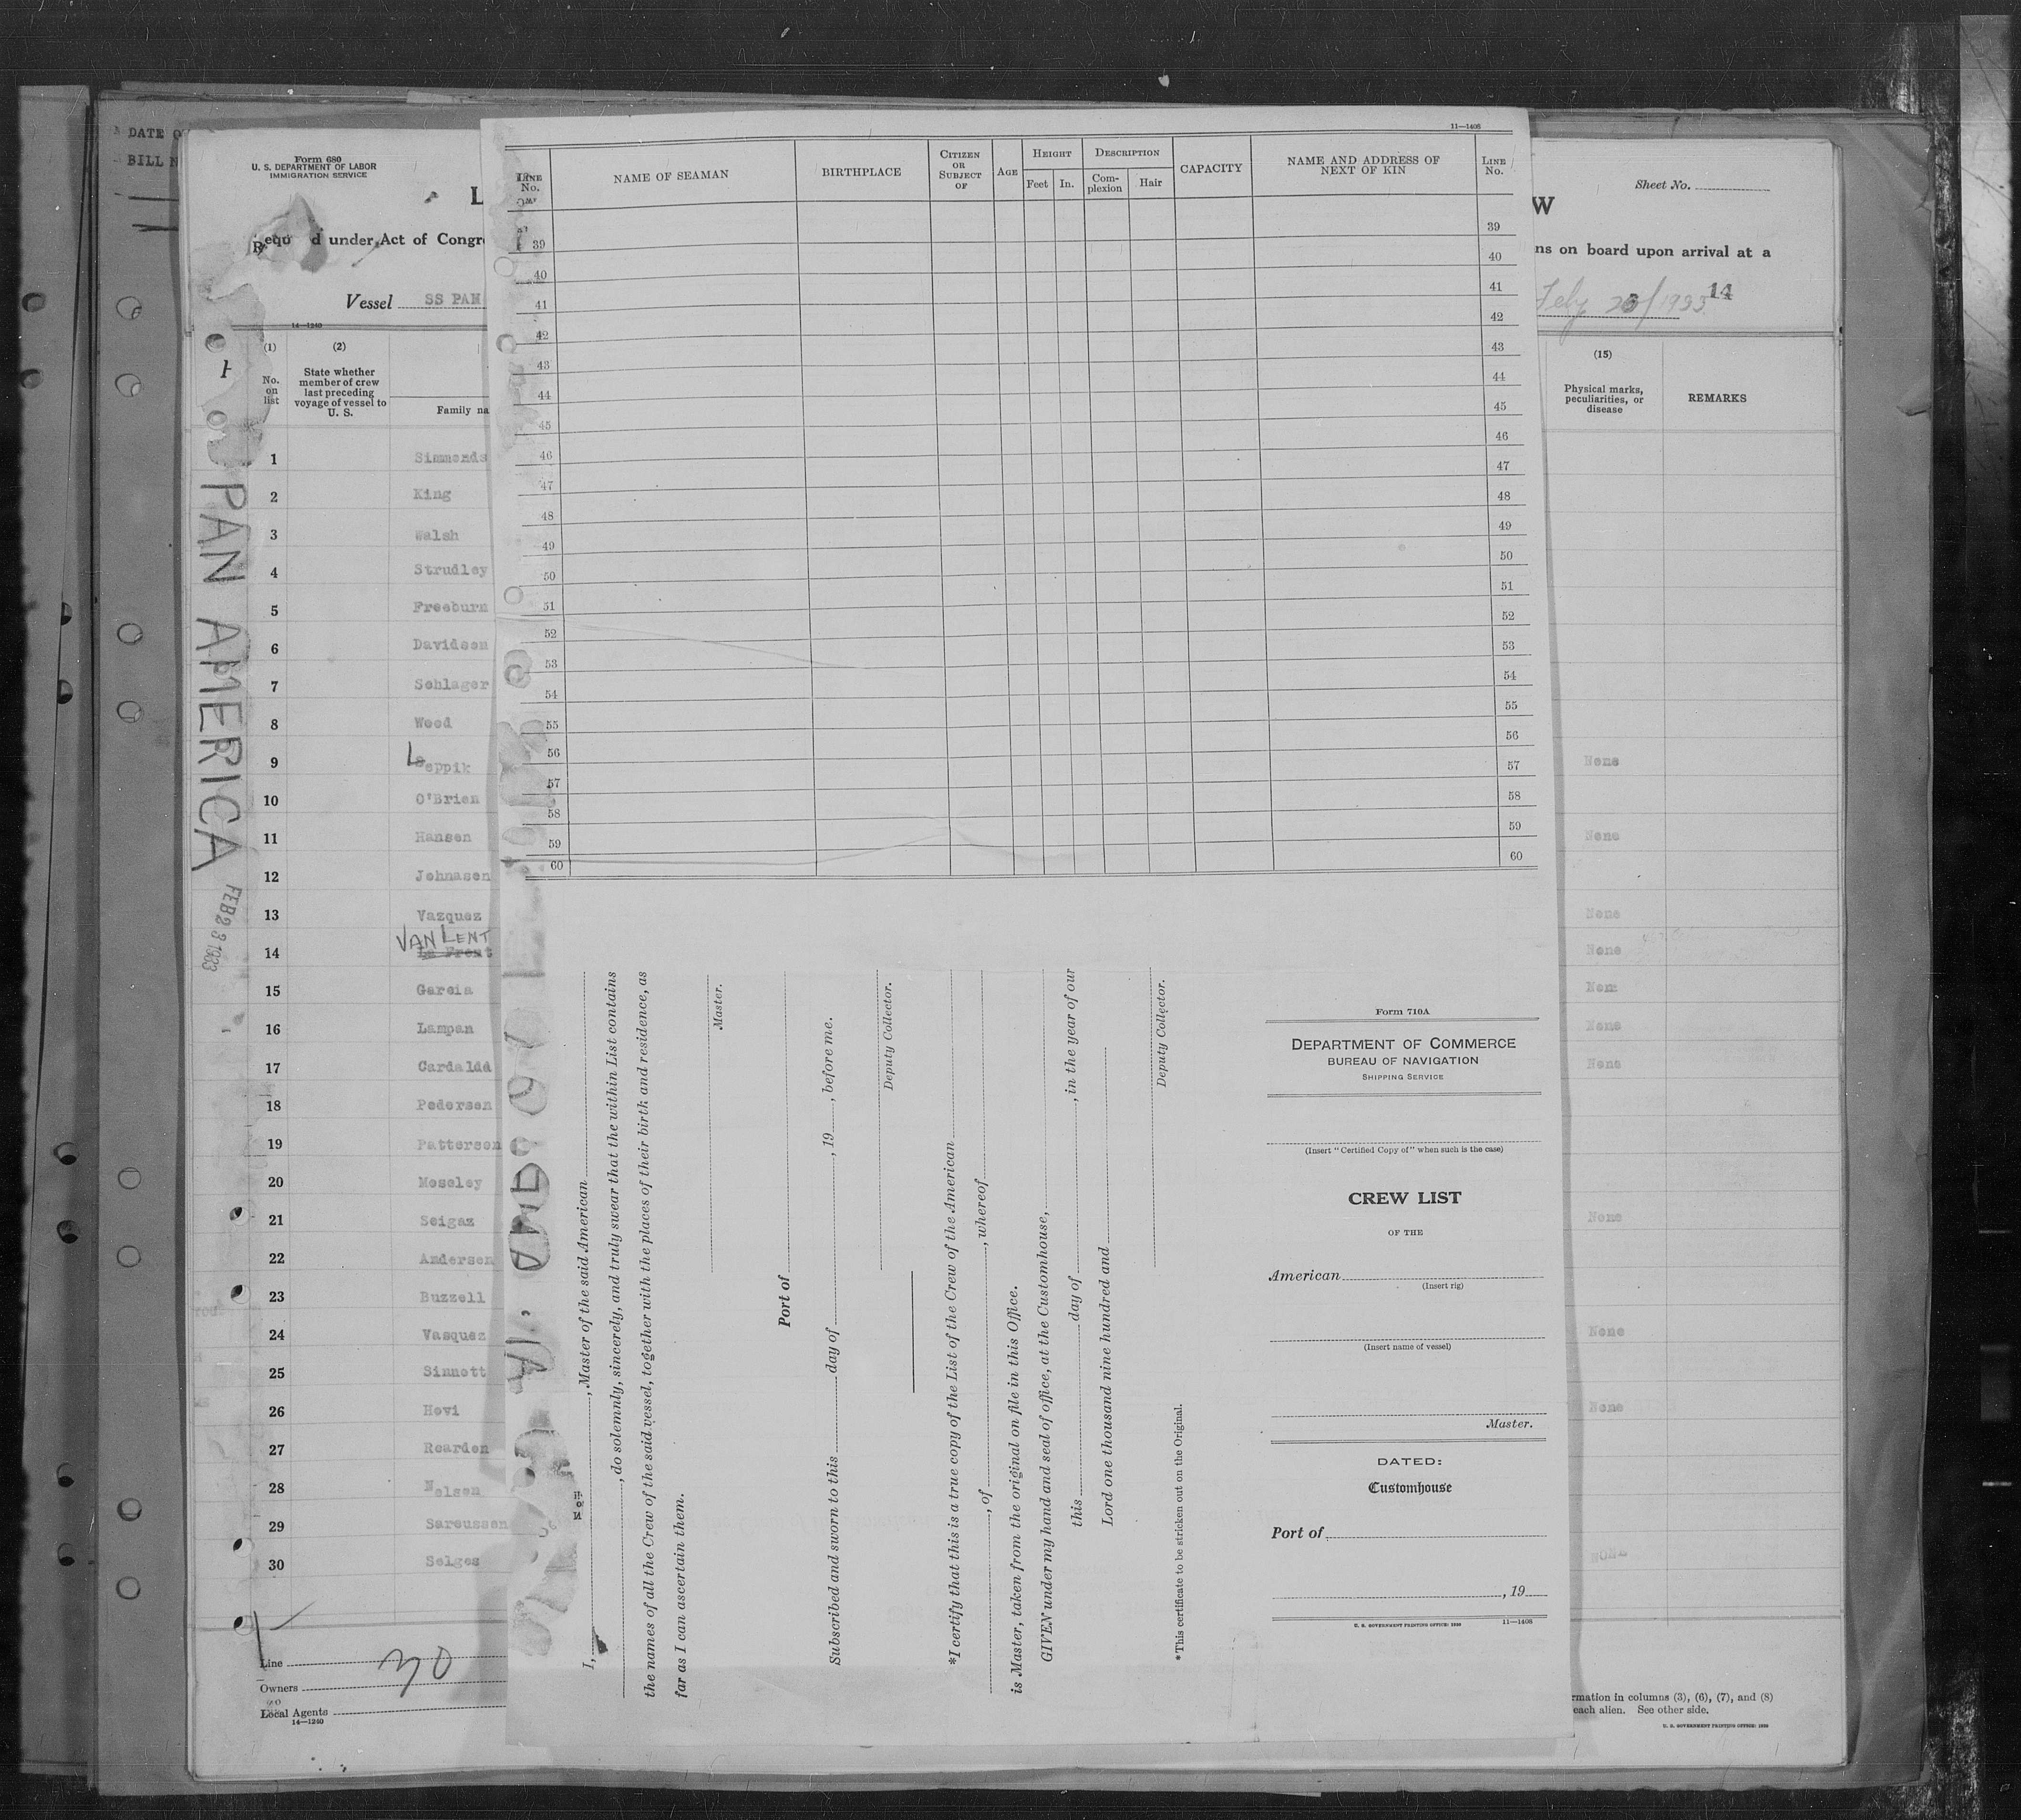 DATE
BILL
Form 680
U. S. DEPARTMENT OF LABOR
IMMIGRATION SERVICE
L
under Act of Congr
Vessel SS PAN
14—1240
(1)
No.
on
list
(2)
State whether
member of crew
last preceding
voyage of vessel to
U. S.
Family na
PAN AMERICA
FEB 23 1933
1 Simmonds
2 King
3 Walsh
4 Strudley
5 Freeburn
6 Davidson
7 Schlager
8 Wood
9 Leppik
10 O'Brien
11 Hansen
12 Johnasen
13 Vazquez
VAN LENT
14
15 Garcia
16 Lampan
17 Cardaldd
18 Pedersen
19 Patterson
20 Moseley
21 Seigaz
22 Andersen
23 Buzzell
24 Vasquez
25 Sinnott
26 Hovi
27 Rearden
28 Nelsen
29
30 Selges
Line
30
Owners
Local Agents
14—1240
11—1408
LINE No.
NAME OF SEAMAN
BIRTHPLACE
CITIZEN OR SUBJECT OF
AGE
HEIGHT
Feet
In.
DESCRIPTION
Complexion
Hair
CAPACITY
NAME AND ADDRESS OF NEXT OF KIN
LINE No.
39 39
40 40
41 41
42 42
43 43
44 44
45 45
46 46
47 47
48 48
49 49
50 50
51 51
52 52
53 53
54 54
55 55
56 56
57 57
58 58
59 59
60 60
I, , Master of the said American
, do solemnly, sincerely, and truly swear that the within List contains
the names of all the Crew of the said vessel, together with the places of their birth and residence, as
far as I can ascertain them.
Master.
Port of
Subscribed and sworn to this day of , 19 , before me.
Deputy Collector.
*I certify that this is a true copy of the List of the Crew of the American
, of , whereof
is Master, taken from the original on file in this Office.
GIVEN under my hand and seal of office, at the Customhouse,
this day of , in the year of our
Lord one thousand nine hundred and
Deputy Collector.
*This certificate to be stricken out on the Original.
Form 710A
DEPARTMENT OF COMMERCE
BUREAU OF NAVIGATION
SHIPPING SERVICE
(Insert "Certified Copy of" when such is the case)
CREW LIST
OF THE
American
(Insert rig)
(Insert name of vessel)
Master.
DATED:
Customhouse
Port of
, 19
U. S. GOVERNMENT PRINTING OFFICE: 1930 11—1408
Sheet No.
W
ns on board upon arrival at a
1933 14
(15)
Physical marks,
peculiarities, or
disease
REMARKS
None
None
None
None
Non
None
None
None
None
None
NONE
rmation in columns (3), (6), (7), and (8)
each alien. See other side.
U. S. GOVERNMENT PRINTING OFFICE: 1930